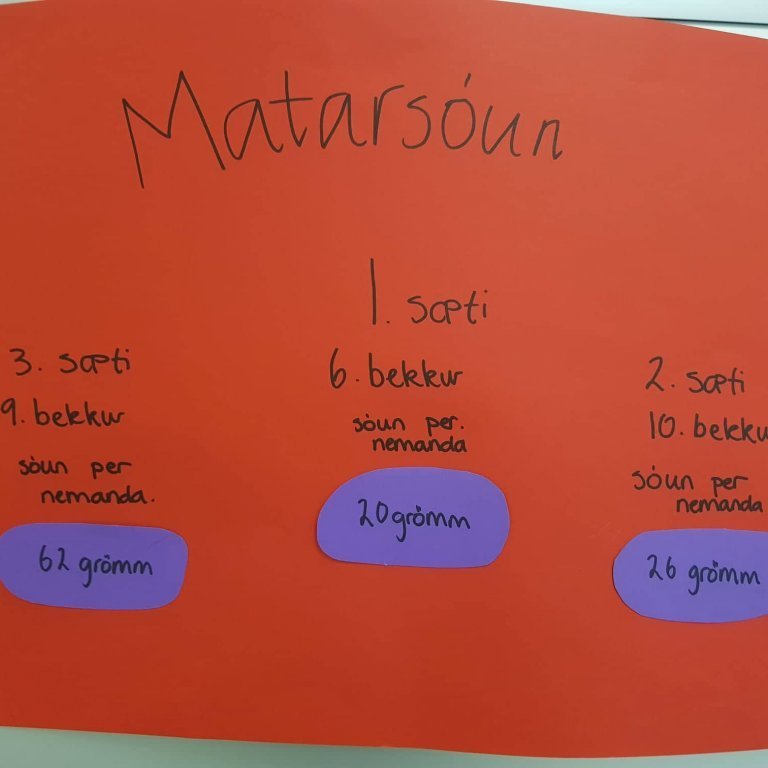 Matarsóun
1. sæti
6. bekkur
sóun per.
nemanda
20 grömm
3. sæti
9. bekkur
sóun per
nemanda.
62 grömm
2. sæti
10. bekku
sóun per
nemanda
26 grömm